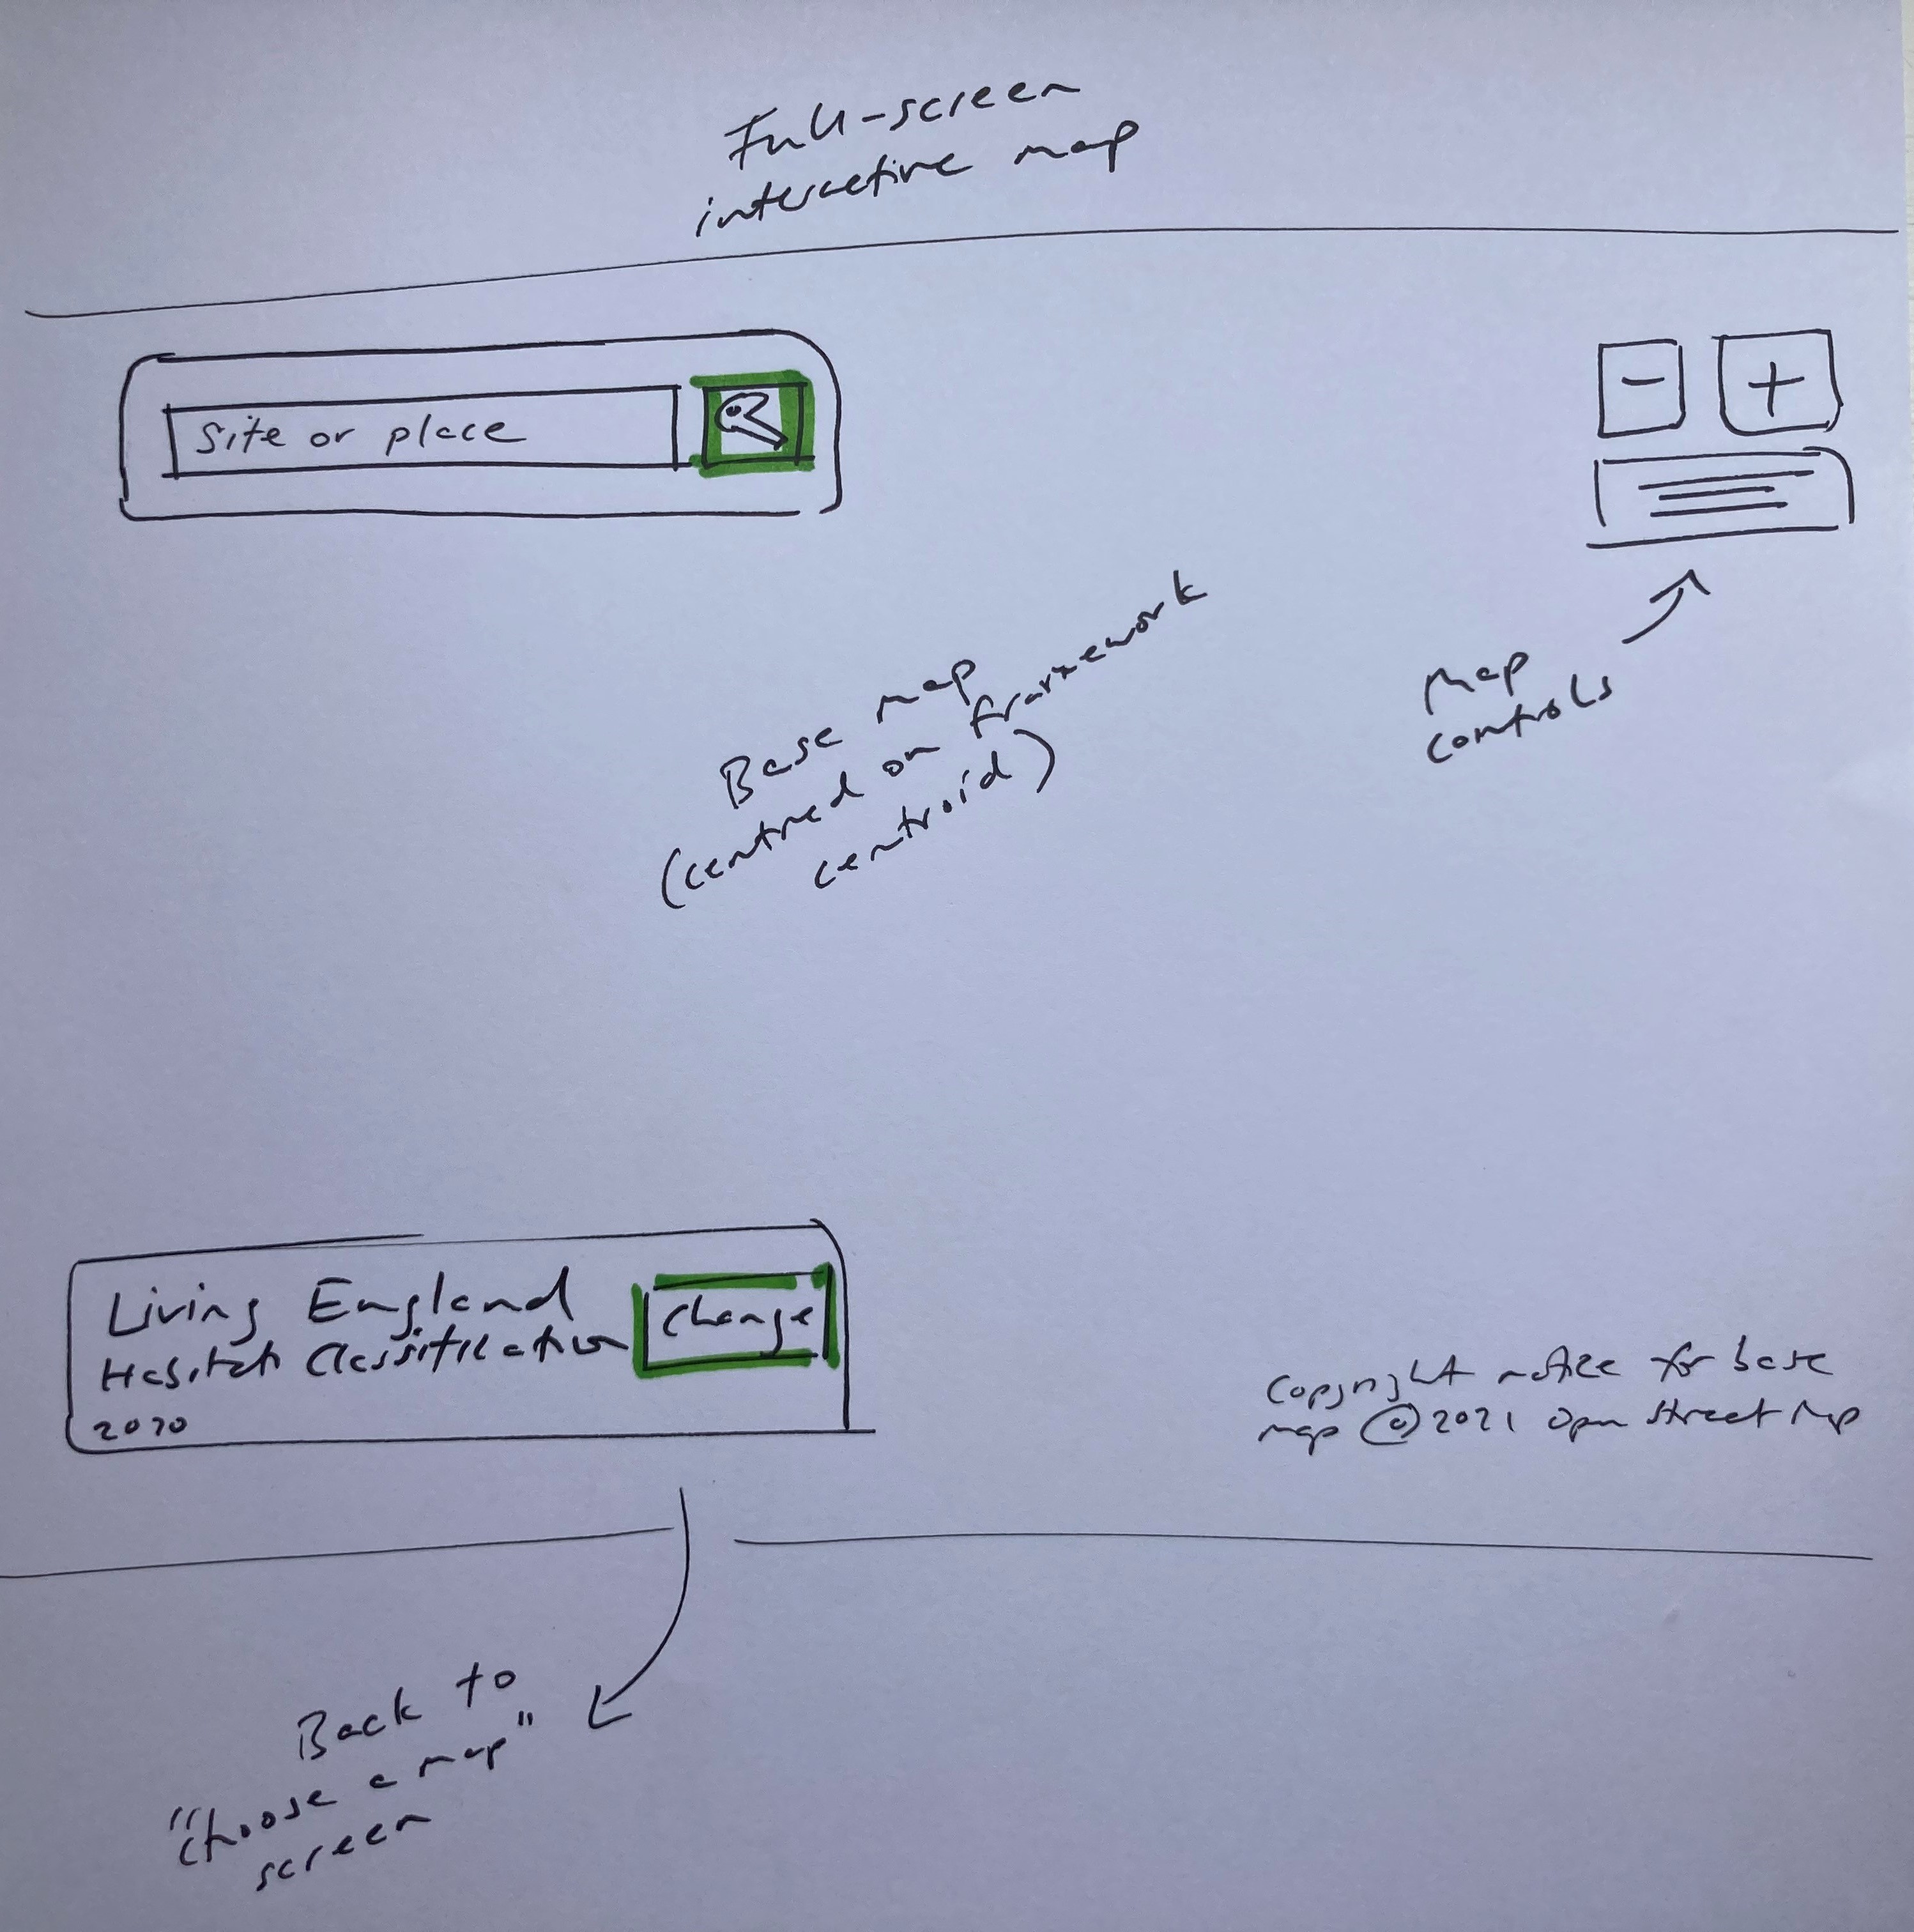 Full-screen
interactive map
Site or place
- +
Map
controls
Base map
(centred on framework
centroid)
Living England
Habitat Classification
2020
Change
Copyright notice for base
map © 2021 Open Street Map
Back to
"Choose a map"
screen